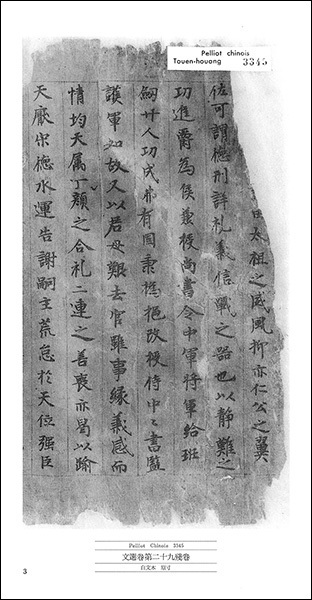 Pelliot chinois
Touen-houang 3345
由太祖之威風抑亦仁公之翼
佐可謂德刑詳礼義信戰之器也以静難之
功進爵為侯兼授尚書令中軍将軍給班
劒廿人功成弗有固秉撝挹改授侍中々書監
護軍如故又以居母艱去官雖事縁義感而
情均天属丁顔之合礼二連之善喪亦曷以踰
天厭宋德水運告謝嗣主荒怠於天位强臣
Pelliot Chinois 3345
文選卷第二十九殘卷
白文本 原寸
3